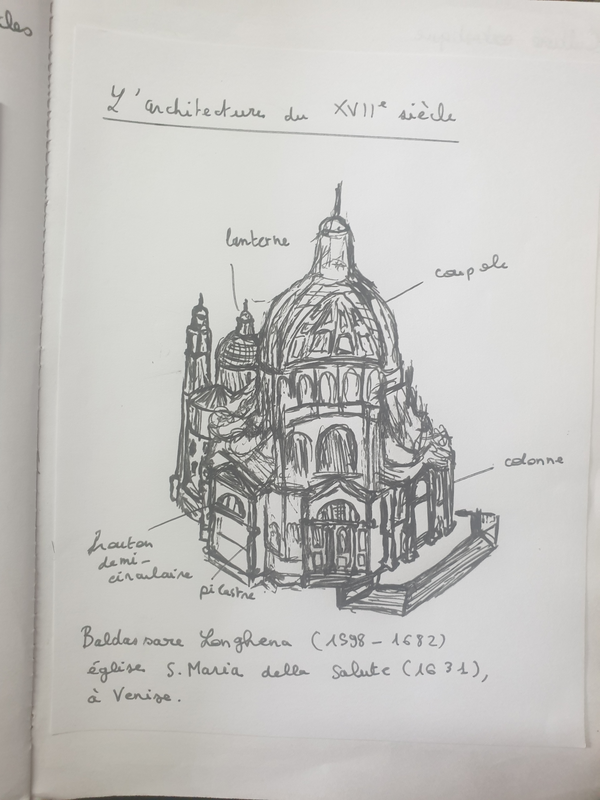 cles
L'architecture du XVIIe siècle
lanterne
coupole
colonne
fronton
demi-
circulaire
pilastre
Baldassare Longhena (1598-1682)
église S. Maria della Salute (1631),
à Venise.